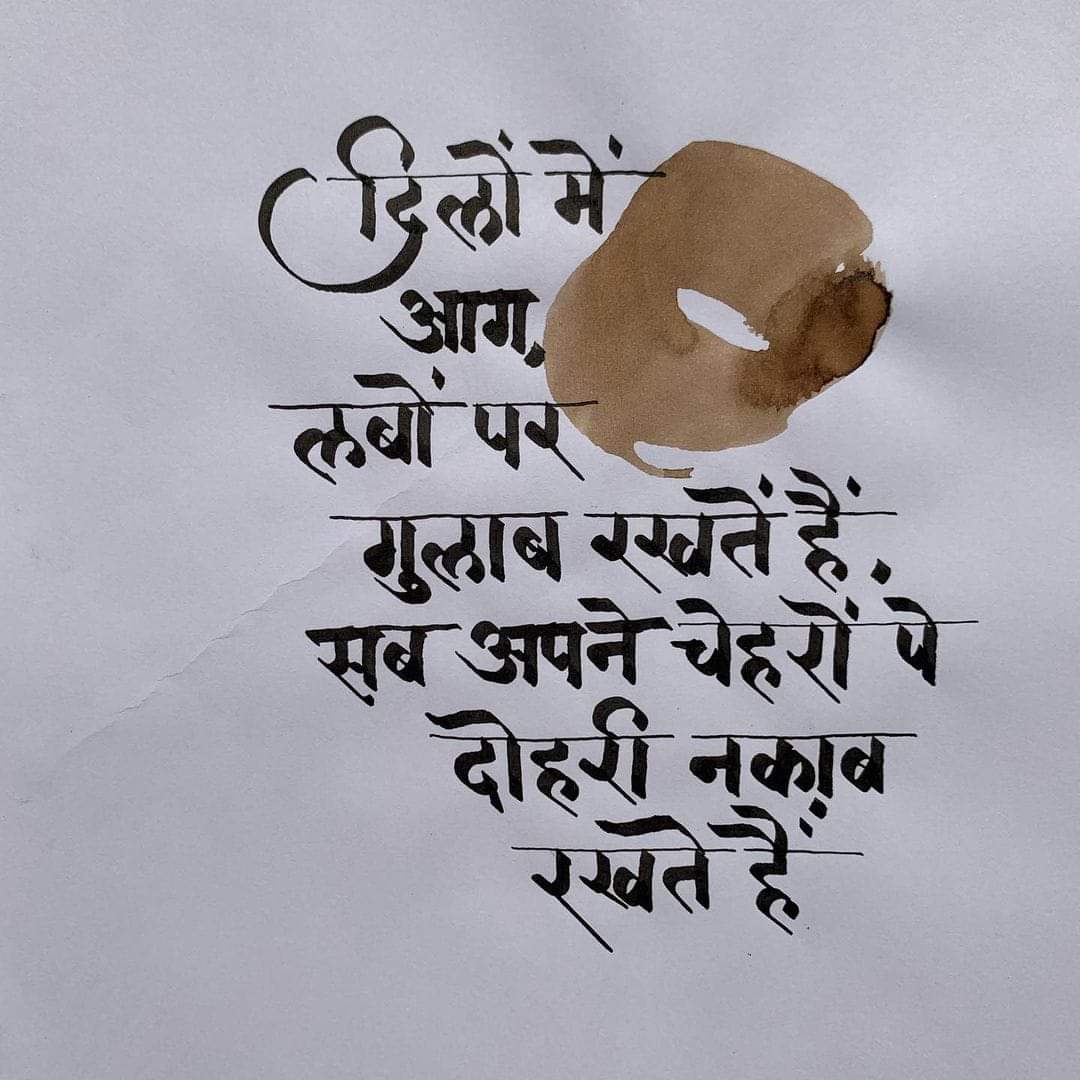 दिलों में
आग,
लबों पर
गुलाब रखतें हैं,
सब अपने चेहरों पे
दोहरी नक़ाब
रखते हैं